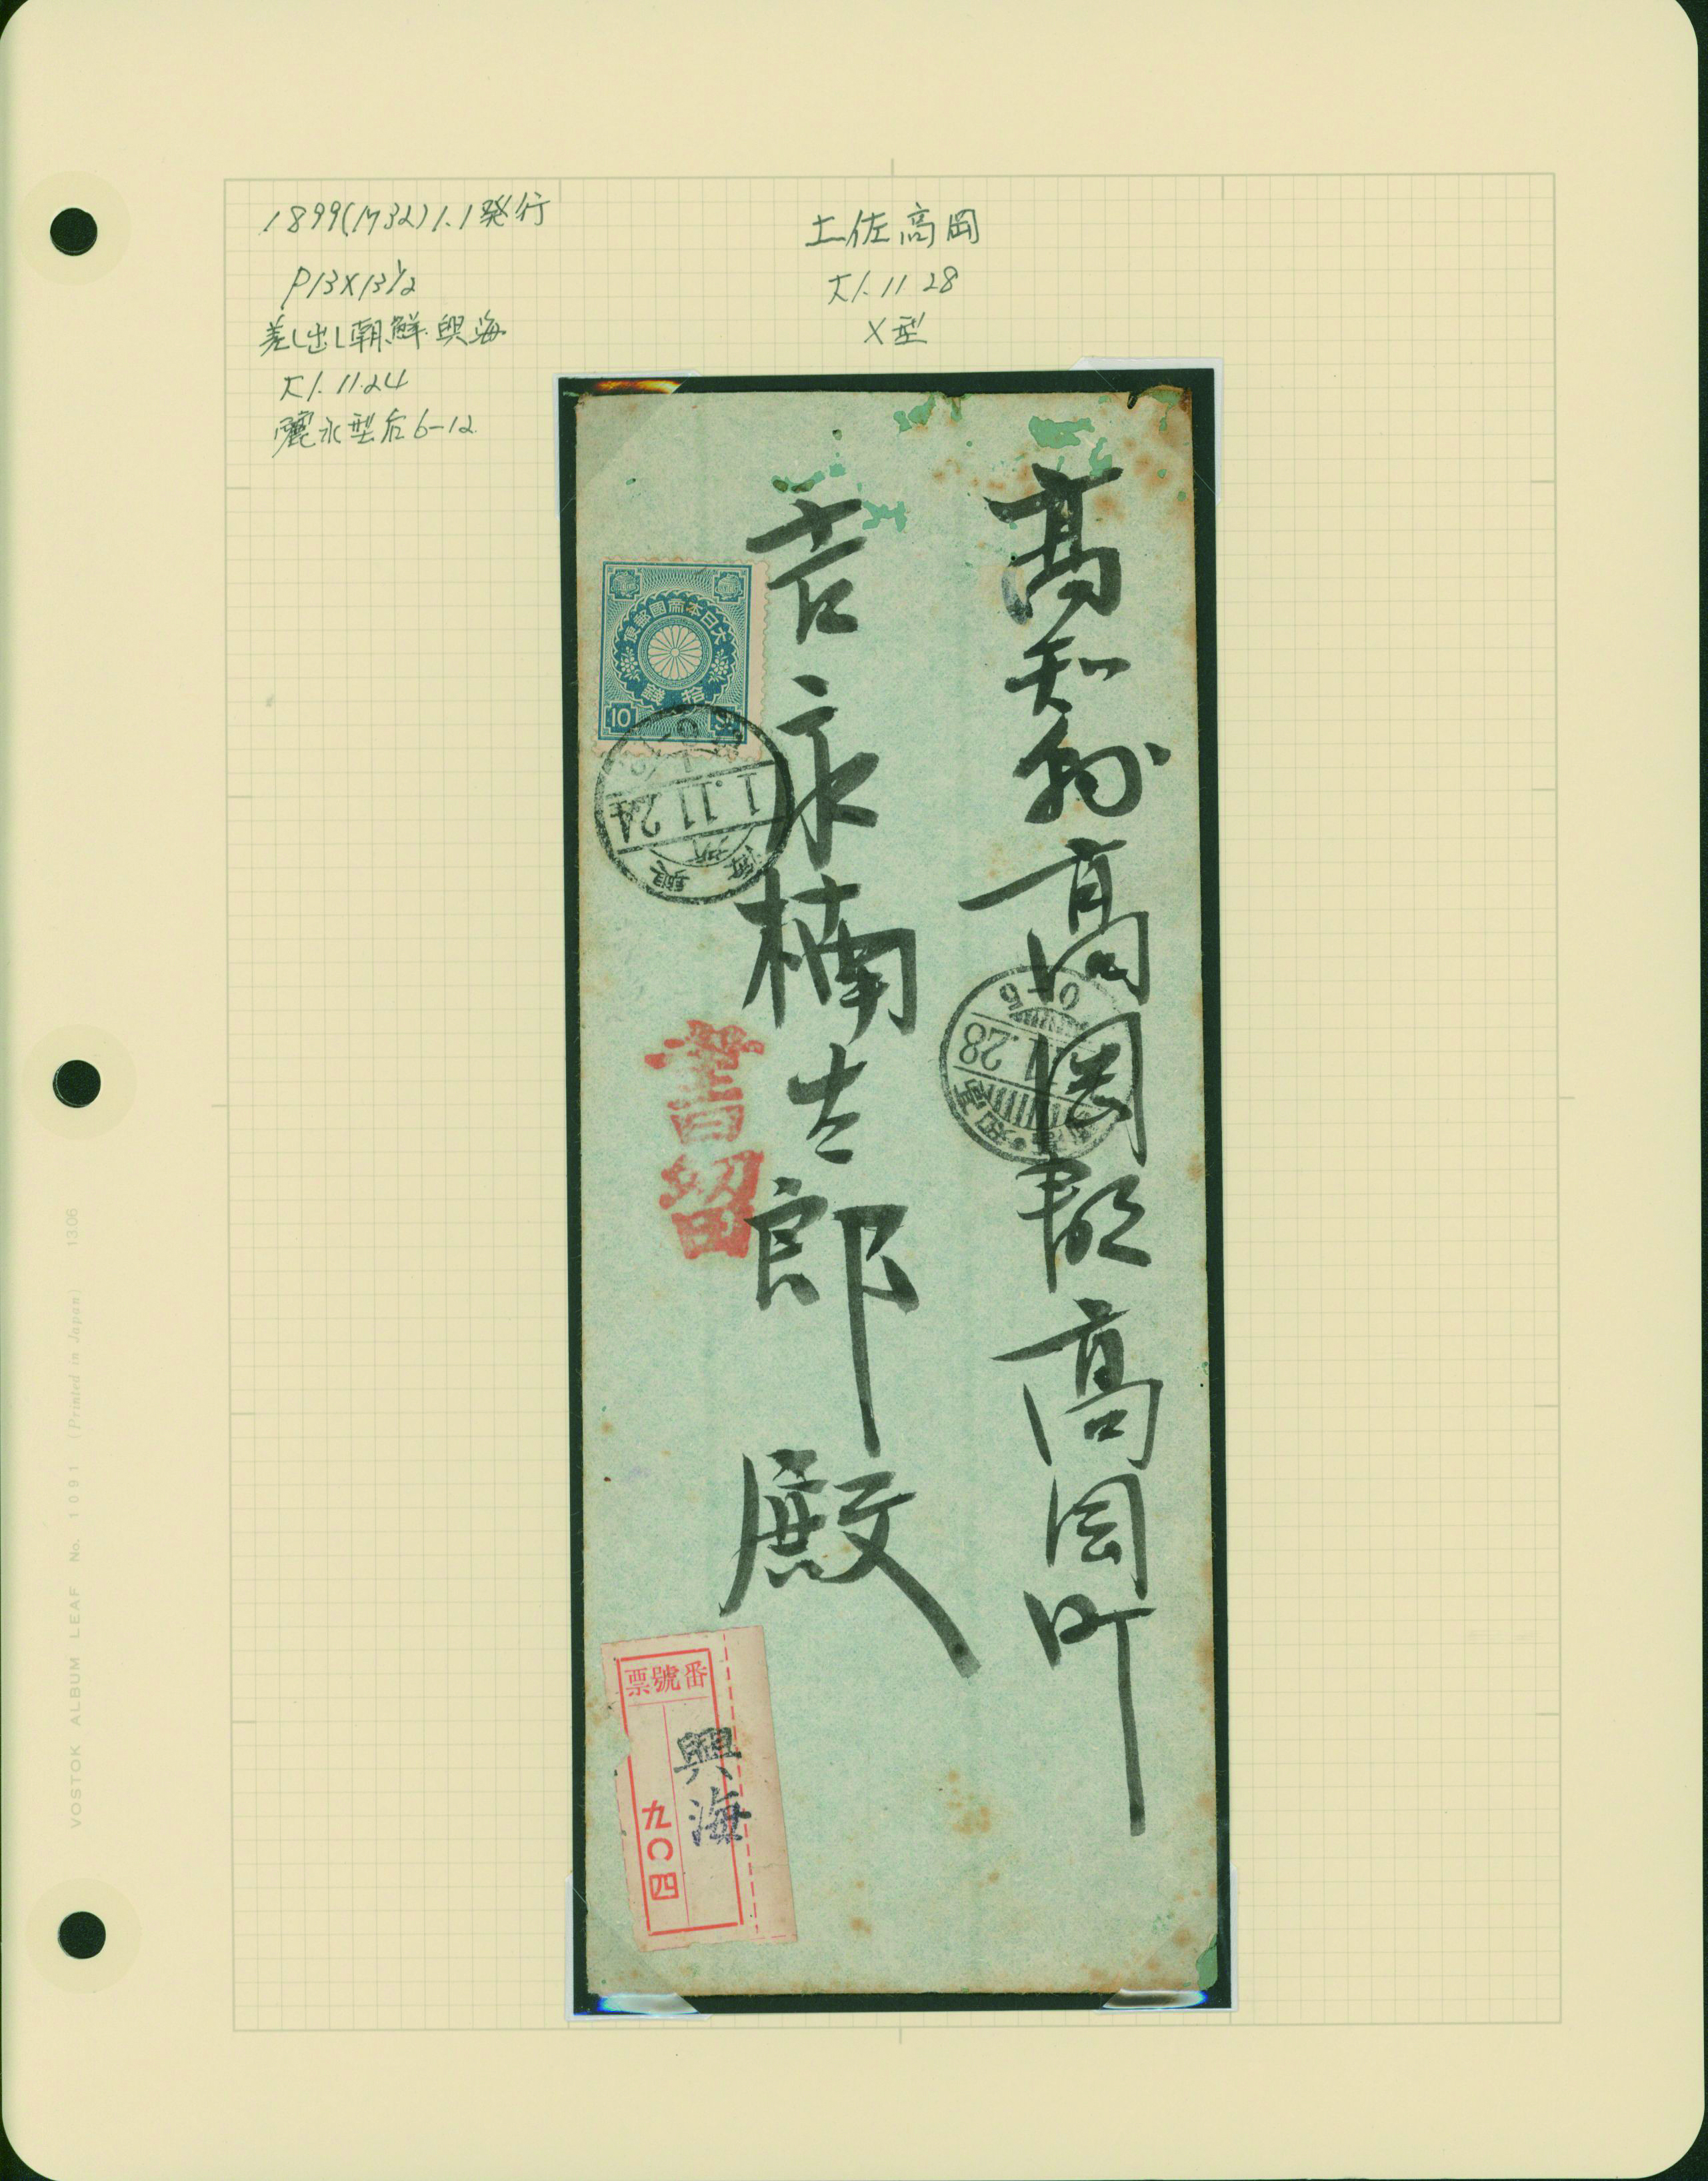 1899(M32)1.1発行
P13×13½
差し出し朝鮮.興海
大1.11.24
麗水型后6-12
土佐高岡
大1.11 28
X型
高知縣高岡郡高岡町
吉永楠太郎殿
大日本帝國郵便
拾銭
10
1.11.24
興海
28
0-5
書留
番號票
興海
九〇四
VOSTOK ALBUM LEAF No. 1091 (Printed in Japan) 1306